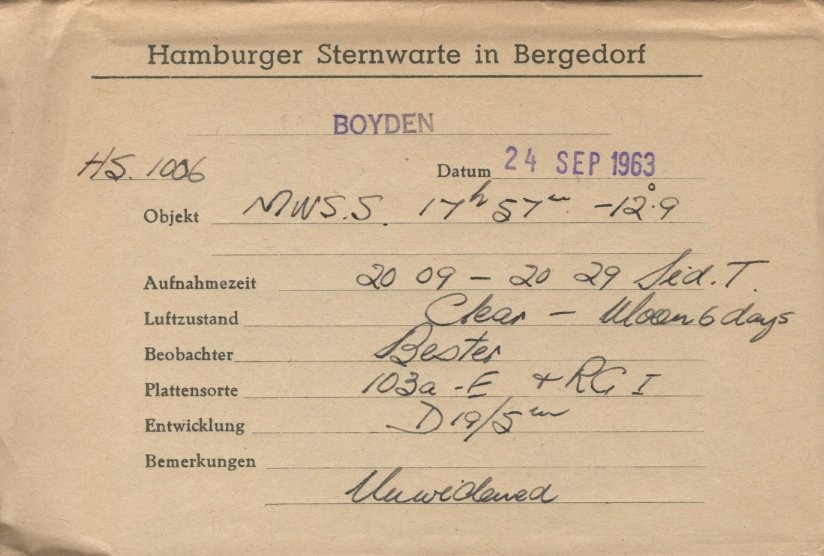 Hamburger Sternwarte in Bergedorf
BOYDEN
HS. 1006 Datum 24 SEP 1963
Objekt MWS.S. 17h 57m -12°.9
Aufnahmezeit 20 09 - 20 29 Sid. T.
Luftzustand Clear - Moon 6 days
Beobachter Bester
Plattensorte 103a-E + RG I
Entwicklung D19/5m
Bemerkungen
Unwidened